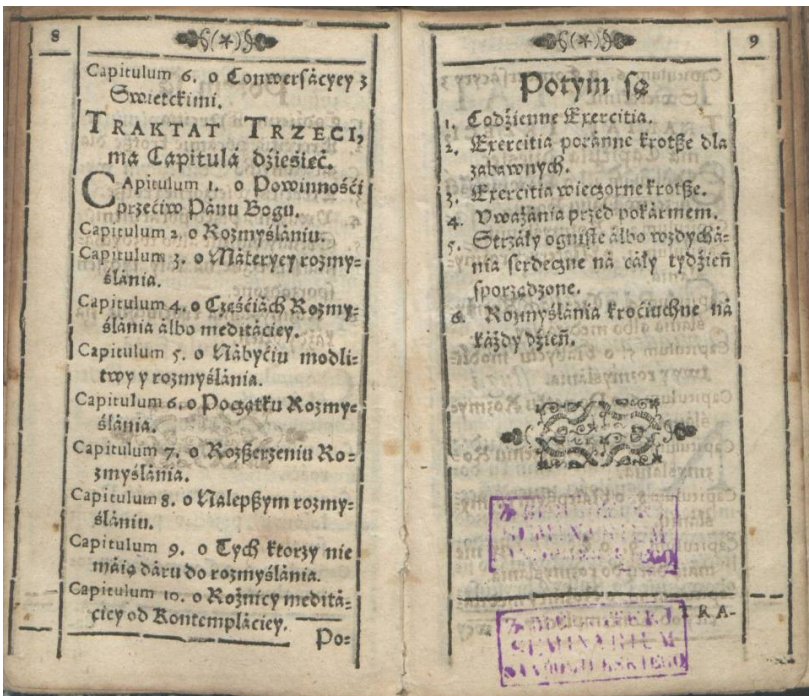 8
Capitulum 6. o Conwersácyey z
Swietckimi.
TRAKTAT TRZECI,
ma Capitulá dźiesieć.
CApitulum 1. o Powinnośći
przećiw Pánu Bogu.
Capitulum 2. o Rozmyślániu.
Capitulum 3. o Máteryey rozmy-
ślánia.
Capitulum 4. o Częśćiách Rozmy-
ślánia álbo meditáciey.
Capitulum 5. o Nábyćiu modli-
twy y rozmyślánia.
Capitulum 6. o Początku Rozmy-
ślánia.
Capitulum 7. o Rozßerzeniu Ro-
zmyślánia.
Capitulum 8. o Nalepßym rozmy-
ślániu.
Capitulum 9. o Tych ktorzy nie
máią dáru do rozmyślánia.
Capitulum 10. o Rożnicy meditá-
ciey od Kontempláciey.
Po-
9
Potym są
1. Codźienne Exercitia.
2. Exercitia poránne krotße dla
zabawnych.
3. Exercitia wieczorne krotße.
4. Vważánia przed pokármem.
5. Strzáły ogniste álbo wzdychá-
nia serdeczne ná cáły tydźień
sporządzone.
6. Rozmyślánia kroćiuchne ná
káżdy dźień.
TRA-
Z BIBLIOTEKI
SEMINARIUM